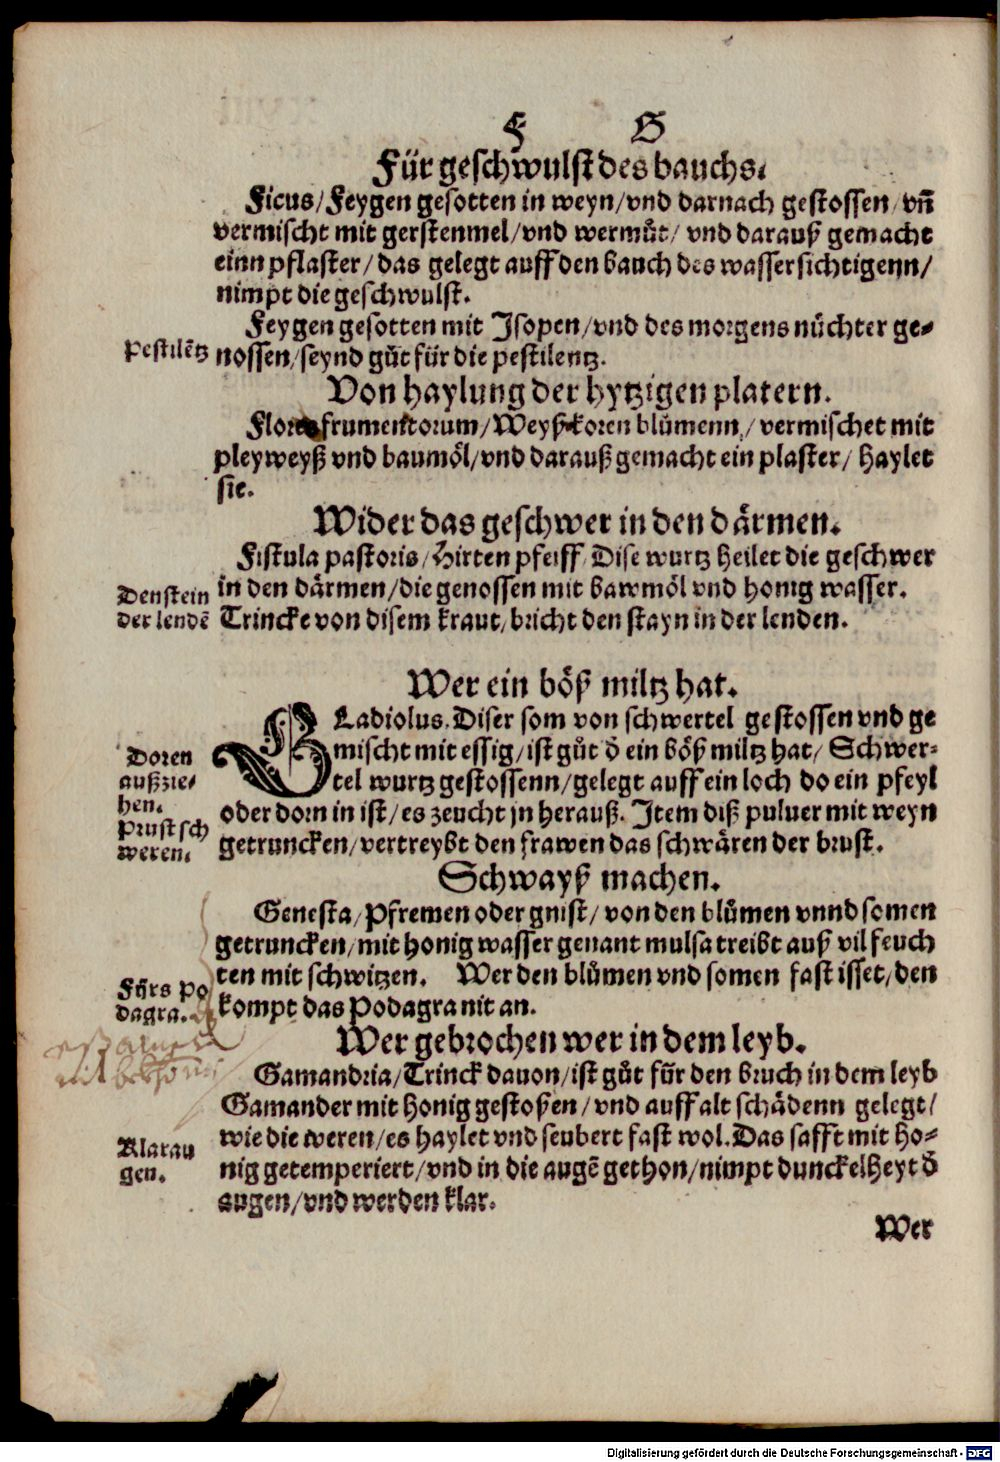 F G
Für geschwulst des bauchs.
Ficus/Feygen gesotten in weyn/vnd darnach gestossen/vñ
vermischt mit gerstenmel/vnd wermůt/ vnd darauß gemacht
einn pflaster/das gelegt auff den bauch des wassersichtigenn/
nimpt die geschwulst.
Feygen gesotten mit Jsopen/vnd des morgens nůchter ge-
Pestilētz
nossen/seynd gůt für die pestilentz.
Von haylung der hytzigen platern.
Flores frumentorum/Weyß koren blůmenn/vermischet mit
pleyweyß vnd baumöl/vnd darauß gemacht ein plaster/ haylet
sie.
Wider das geschwer in den därmen.
Fistula pastoris/Hirten pfeiff/Dise wurtz heilet die geschwer
Den stein
in den därmen/die genossen mit bawmöl vnd honig wasser.
der lendē
Trincke von disem kraut/bricht den stayn in der lenden.
Wer ein böß miltz hat.
GLadiolus.Diser som von schwertel gestossen vnd ge
mischt mit essig/ist gůt ð ein böß miltz hat/ Schwer-
tel wurtz gestossenn/gelegt auff ein loch do ein pfeyl
oder dorn in ist/es zeucht jn herauß. Jtem diß puluer mit weyn
getruncken/vertreybt den frawen das schwären der brust.
Doren
außzie-
hen.
Prust sch
weren.
Schwayß machen.
Genesta/Pfremen oder gnist/von den blůmen vnnd somen
getruncken/mit honig wasser genant mulsa treibt auß vil feuch
ten mit schwitzen. Wer den blůmen vnd somen fast isset/den
kompt das Podagra nit an.
Fürs po
dagra.
Wer gebrochen wer in dem leyb.
Gamandria/Trinck dauon/ist gůt für den bruch in dem leyb
Gamander mit honig gestoßen/vnd auff alt schädenn gelegt/
wie die weren/es haylet vnd seubert fast wol.Das safft mit ho-
nig getemperiert/vnd in die augē gethon/nimpt dunckelheyt ð
augen/vnd werden klar.
Klar au
gen.
Wer
Digitalisierung gefördert durch die Deutsche Forschungsgemeinschaft - DFG